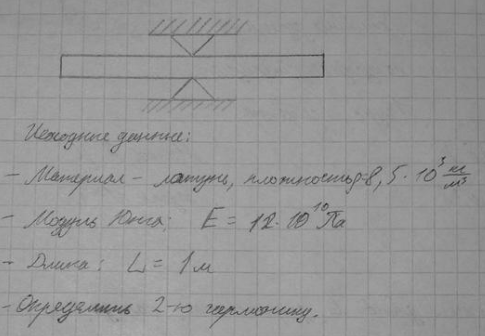 Исходные данные:
- Материал - латунь, плотность ρ=8,5·10³ кг/м³
- Модуль Юнга: E = 12·10¹⁰ Па
- Длина: L = 1 м
- Определить 2-ю гармонику.